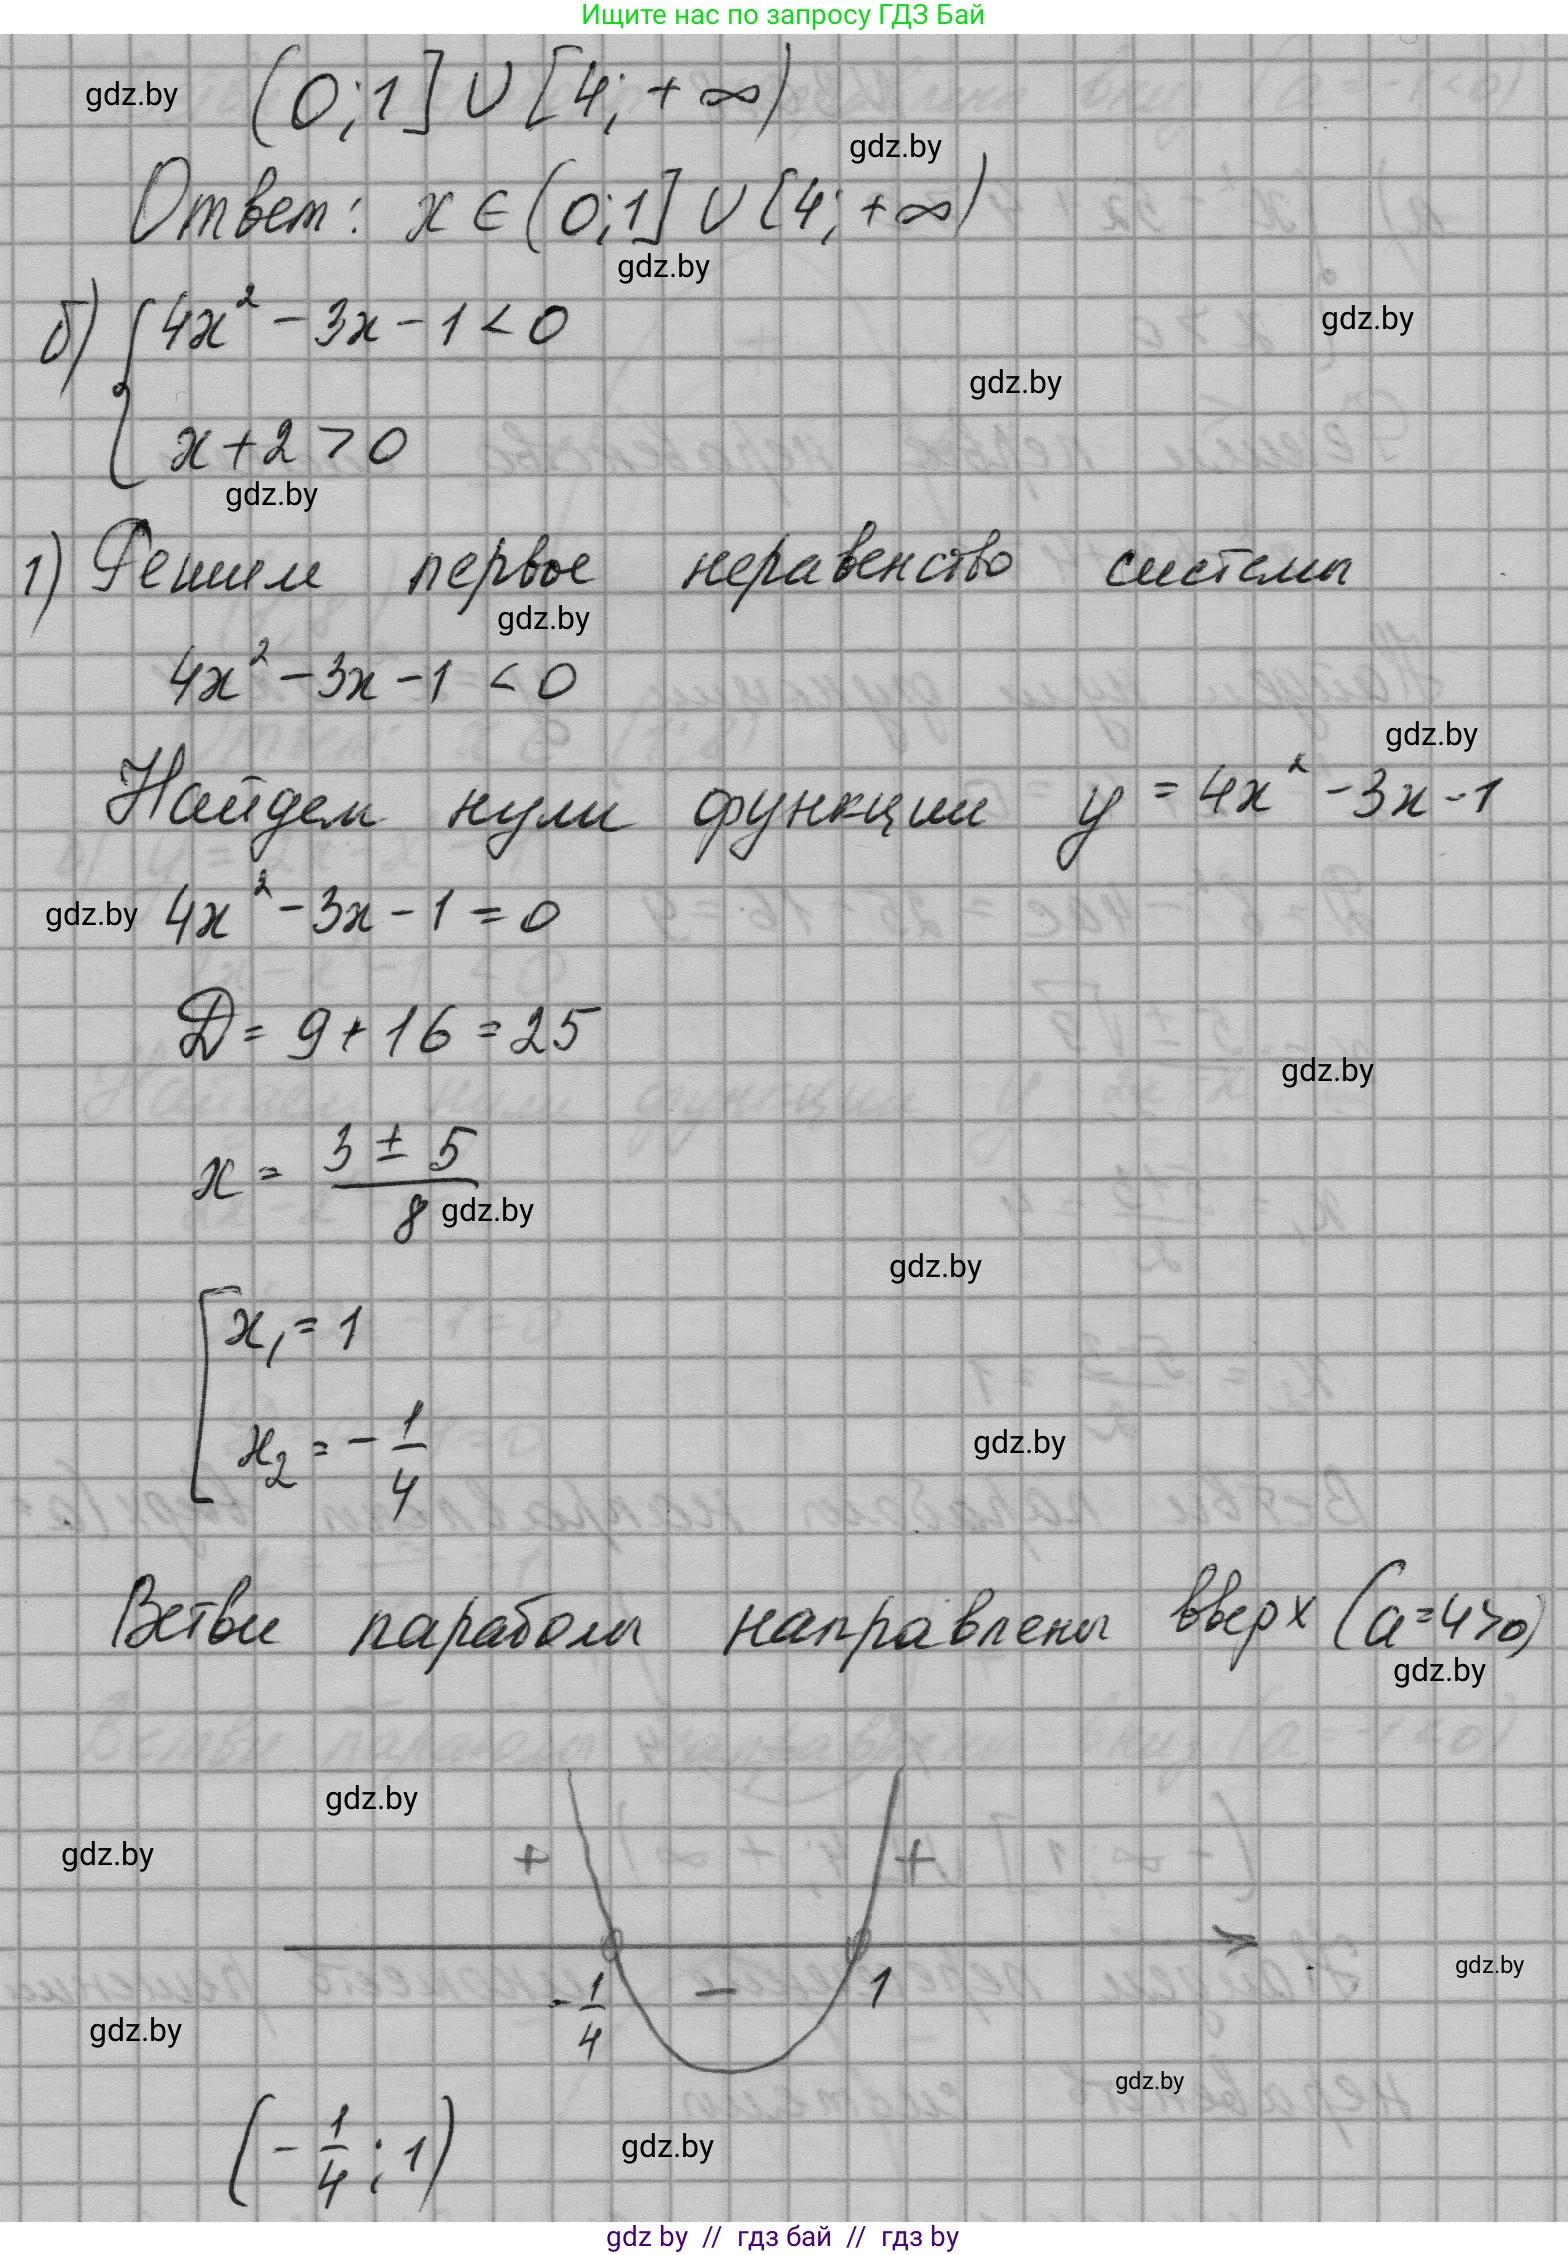 Ищите нас по запросу ГДЗ Бай
gdz.by
(0;1] ∪ [4; +∞)
gdz.by
Ответ: x ∈ (0;1] ∪ [4; +∞)
gdz.by
б) { 4x² - 3x - 1 < 0
gdz.by
gdz.by
x + 2 > 0
gdz.by
1) Решим первое неравенство системы
gdz.by
4x² - 3x - 1 < 0
gdz.by
Найдем нули функции y = 4x² - 3x - 1
gdz.by
4x² - 3x - 1 = 0
D = 9 + 16 = 25
gdz.by
x = (3 ± 5)/8
gdz.by
gdz.by
[ x₁ = 1
gdz.by
x₂ = - 1/4
Ветви параболы направлены вверх (a = 4 > 0)
gdz.by
gdz.by
gdz.by
+ +
gdz.by
- 1/4 - 1
gdz.by
gdz.by
(- 1/4 ; 1)
gdz.by
gdz by // гдз бай // гдз by